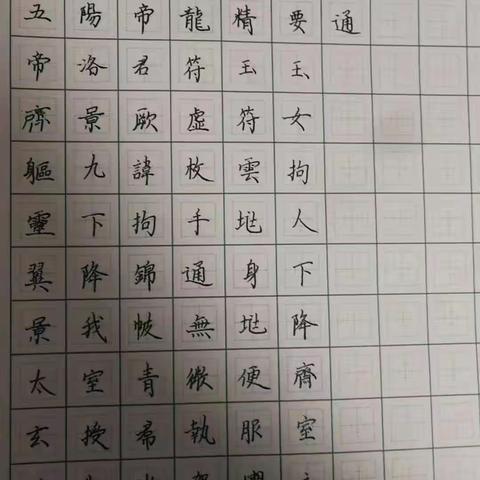 五陽帝龍精要通
帝洛君符玉玉
齊景厥虛符女
軀九諱枚雲拘
靈下拘手地人
翼降錦通身下
景我帔無地降
太室青微便齊
玄授希執服室